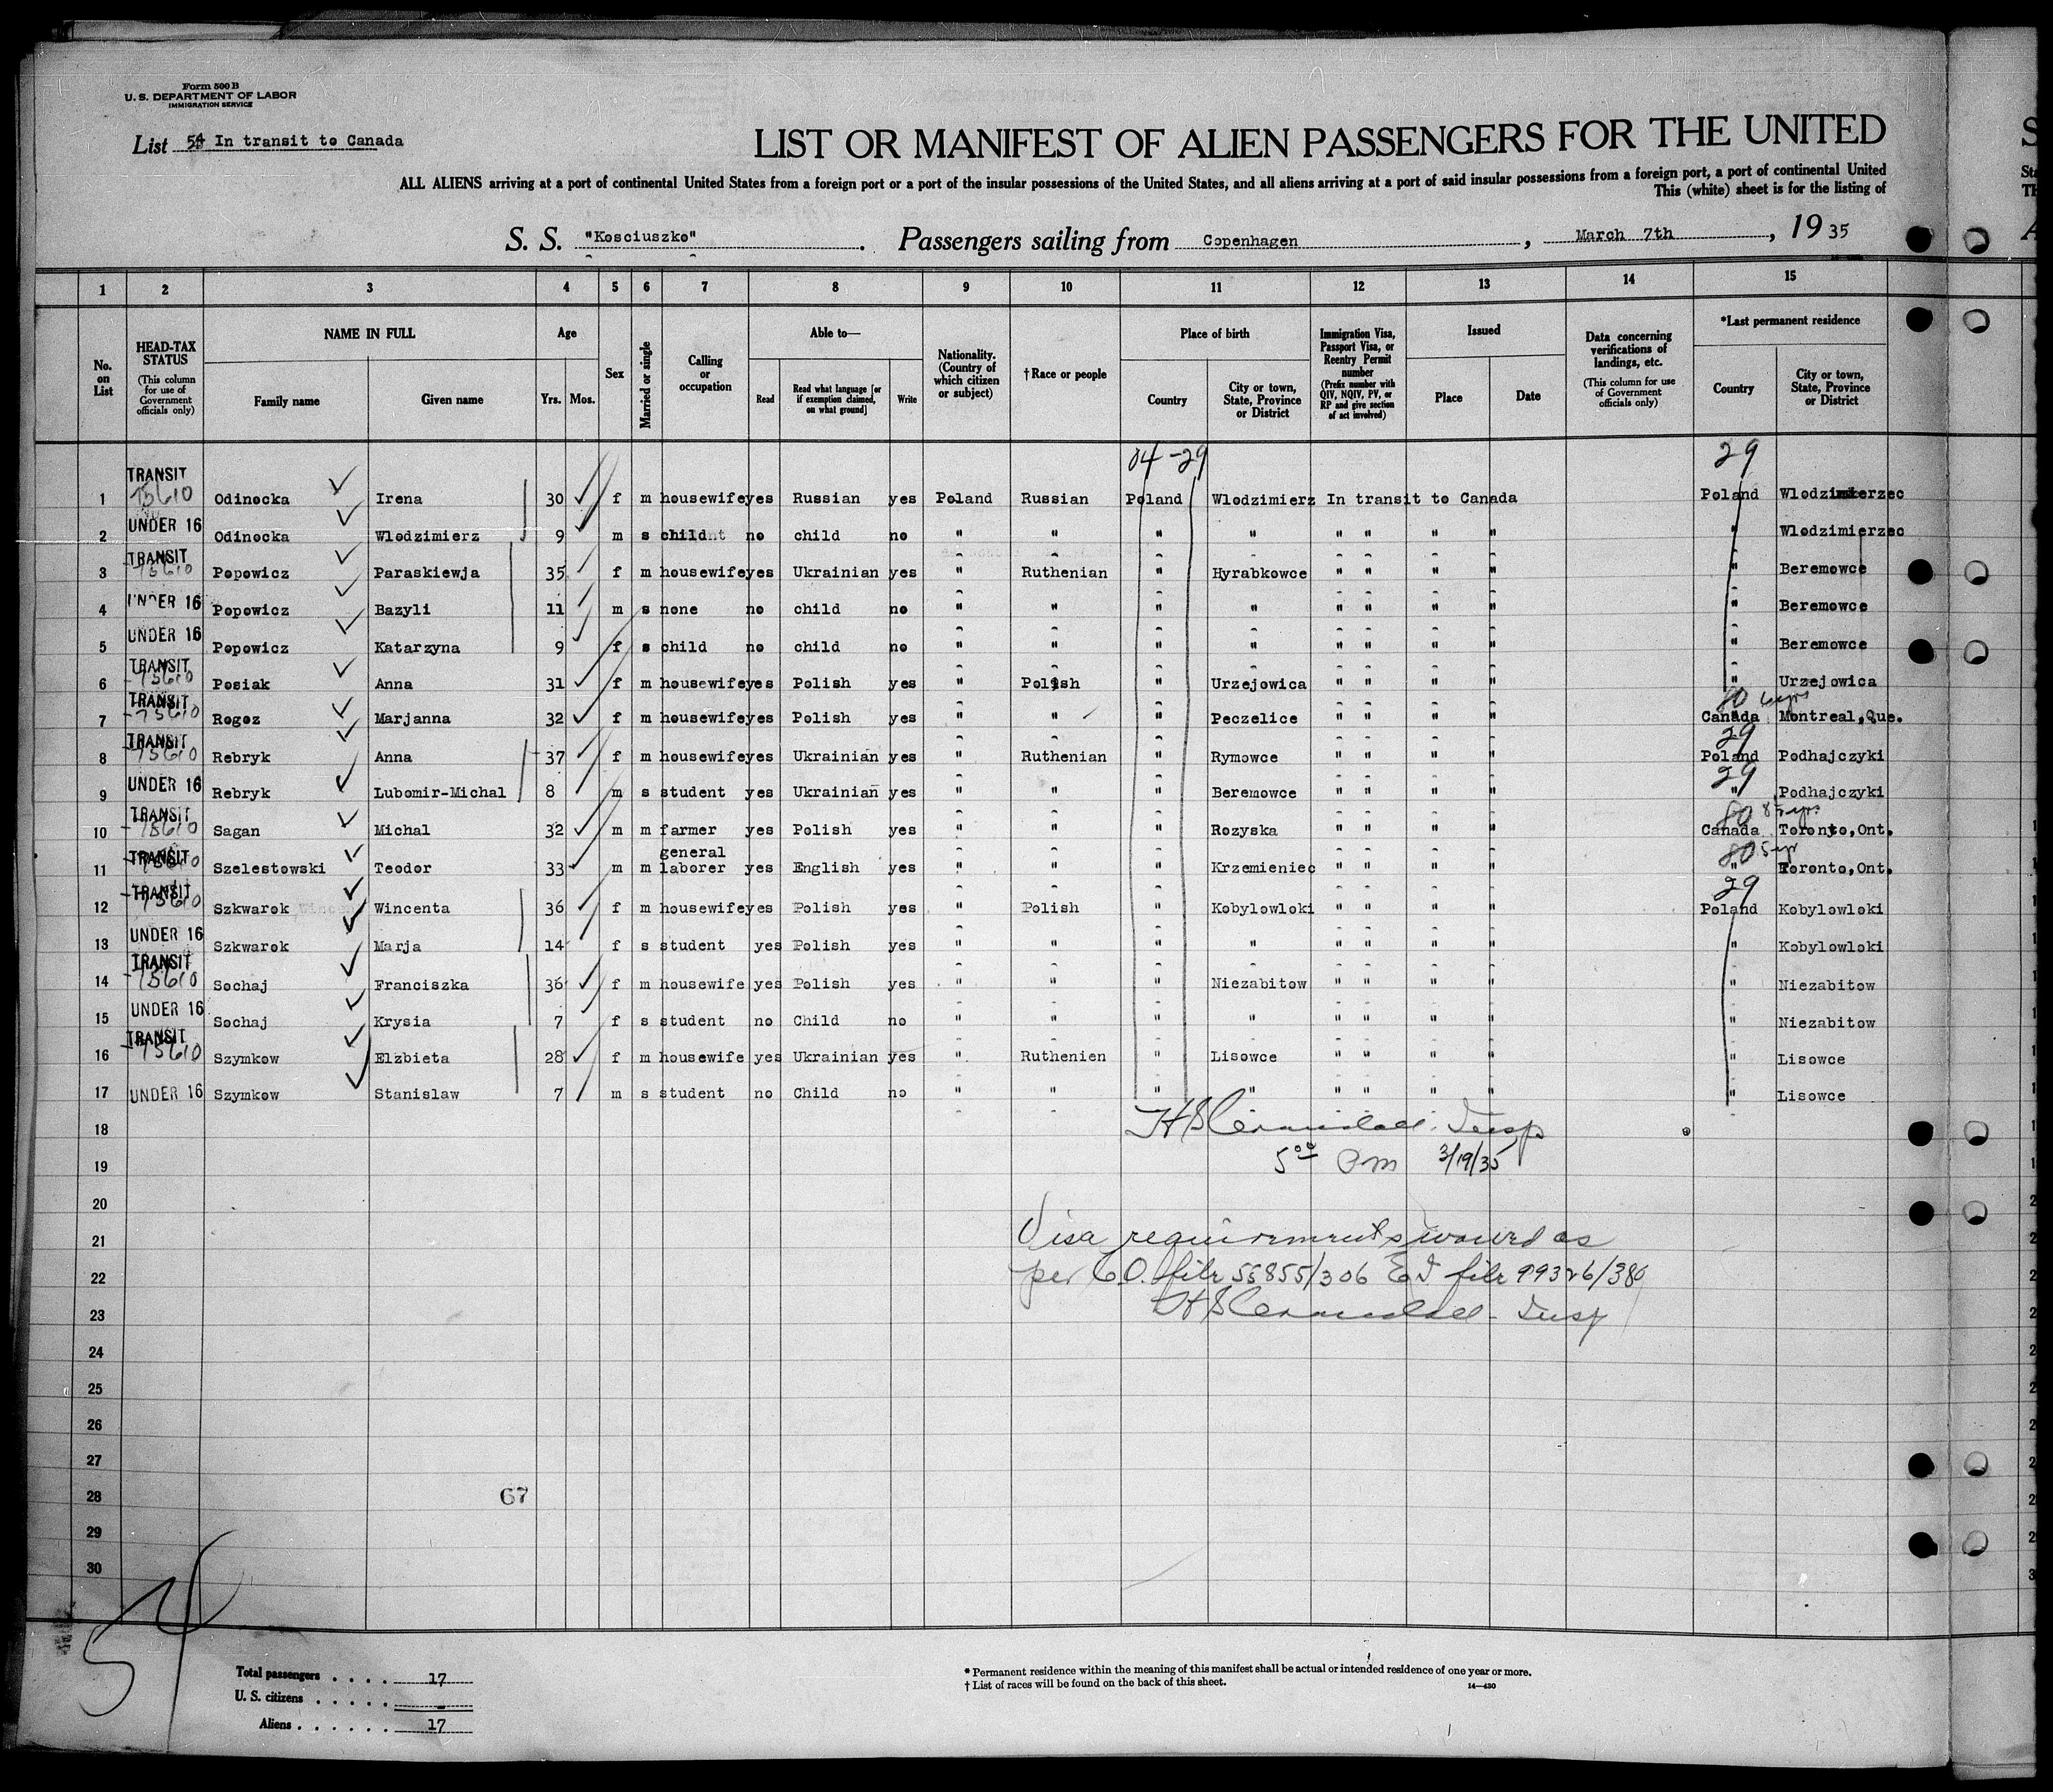 Form 500 B
U. S. DEPARTMENT OF LABOR
IMMIGRATION SERVICE
List 54 In transit to Canada
LIST OR MANIFEST OF ALIEN PASSENGERS FOR THE UNITED
ALL ALIENS arriving at a port of continental United States from a foreign port or a port of the insular possessions of the United States, and all aliens arriving at a port of said insular possessions from a foreign port, a port of continental United
This (white) sheet is for the listing of
S. S. "Kosciuszko". Passengers sailing from Copenhagen, March 7th, 19 35
1 2 3 4 5 6 7 8 9 10 11 12 13 14 15
No. on List
HEAD-TAX STATUS (This column for use of Government officials only)
NAME IN FULL Family name Given name
Age Yrs. Mos.
Sex
Married or single
Calling or occupation
Able to— Read Read what language [or if exemption claimed, on what ground] Write
Nationality. (Country of which citizen or subject)
†Race or people
Place of birth Country City or town, State, Province or District
Immigration Visa, Passport Visa, or Reentry Permit number (Prefix number with QIV, NQIV, PV, or RP and give section of act involved)
Issued Place Date
Data concerning verifications of landings, etc. (This column for use of Government officials only)
*Last permanent residence Country City or town, State, Province or District
04-29 29
1 TRANSIT 15610 Odinocka Irena 30 f m housewife yes Russian yes Poland Russian Poland Wlodzimierz In transit to Canada Poland Wlodzimierzec
2 UNDER 16 Odinocka Wlodzimierz 9 m s child no child no " " " " " " " " " Wlodzimierzec
3 TRANSIT 15610 Popowicz Paraskiewja 35 f m housewife yes Ukrainian yes " Ruthenian " Hyrabkowce " " " " " Beremowce
4 UNDER 16 Popowicz Bazyli 11 m s none no child no " " " " " " " " " Beremowce
5 UNDER 16 Popowicz Katarzyna 9 f s child no child no " " " " " " " " " Beremowce
6 TRANSIT 15610 Posiak Anna 31 f m housewife yes Polish yes " Polish " Urzejowica " " " " " Urzejowica
7 TRANSIT 15610 Rogoz Marjanna 32 f m housewife yes Polish yes " " " Peczelice " " " " 80 6 yrs Canada Montreal, Que.
8 TRANSIT 15610 Rebryk Anna 37 f m housewife yes Ukrainian yes " Ruthenian " Rymowce " " " " 29 Poland Podhajczyki
9 UNDER 16 Rebryk Lubomir-Michal 8 m s student yes Ukrainian yes " " " Beremowce " " " " 29 " Podhajczyki
10 TRANSIT 15610 Sagan Michal 32 m m farmer yes Polish yes " " " Rozyska " " " " 80 Canada Toronto, Ont.
11 TRANSIT 15610 Szelestowski Teodor 33 m m general laborer yes English yes " " " Krzemieniec " " " " 80 5 yr " Toronto, Ont.
12 TRANSIT 15610 Szkwarok Wincenta 36 f m housewife yes Polish yes " Polish " Kobylowloki " " " " 29 Poland Kobylowloki
13 UNDER 16 Szkwarok Marja 14 f s student yes Polish yes " " " " " " " " " Kobylowloki
14 TRANSIT 15610 Sochaj Franciszka 36 f m housewife yes Polish yes " " " Niezabitow " " " " " Niezabitow
15 UNDER 16 Sochaj Krysia 7 f s student no Child no " " " " " " " " " Niezabitow
16 TRANSIT 15610 Szymkow Elzbieta 28 f m housewife yes Ukrainian yes " Ruthenien " Lisowce " " " " " Lisowce
17 UNDER 16 Szymkow Stanislaw 7 m s student no Child no " " " " " " " " " Lisowce
18 Insp
19 5 00 Pm 3/19/35
20
21 Visa requirements waived as
22 per C.O. file 55855/306 E I file 99326/380
23 Insp
24
25
26
27
28 67
29
30
54
Total passengers . . . . 17
U. S. citizens . . . . . -
Aliens . . . . . . 17
* Permanent residence within the meaning of this manifest shall be actual or intended residence of one year or more.
† List of races will be found on the back of this sheet. 14—430